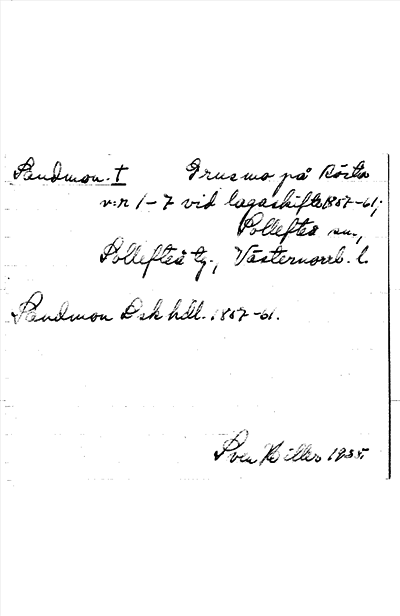 Sandmon. † Grusmo på Rösta
n:r 1-7 vid lagaskifte 1857-61;
Sollefteå sn.,
Sollefteå tg., Västernorrl. l.
Sandmon Dsk hdl. 1857-61.
Sven Hillers 1935.